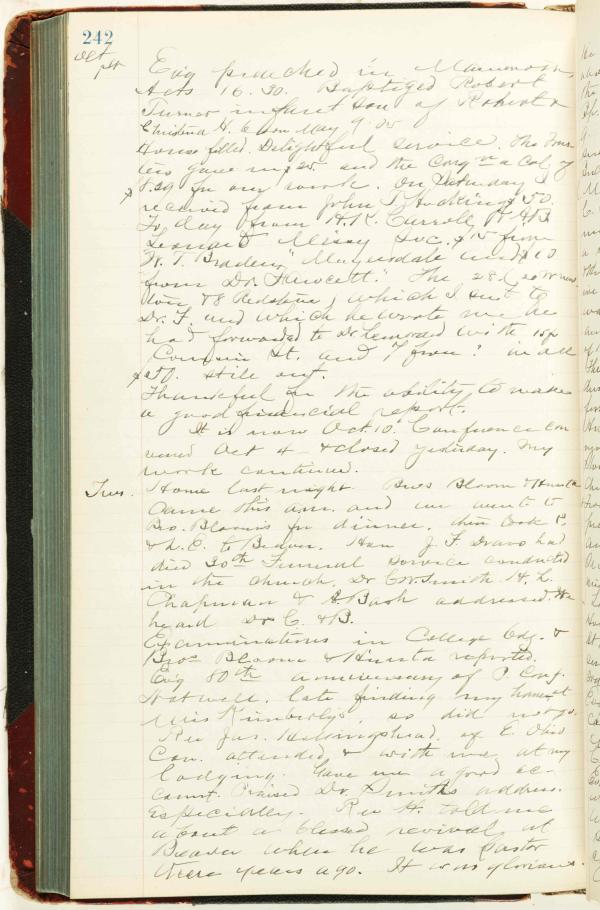 242
Oct
Evg preached in
Acts 16.30. Baptized Robert
Turner infant son of Robert &
Christina H. C born May 9.05
House filled. Delightful service. The Trus
tees gave me $25 and the Congn a Col. of
8.59 for our work. On Saturday I
received from John P. Hopkins $50.
To day from H. K. Carroll, & A.B.
Leonard Missy Soc. $15 from
W. T. Braden, Meyersdale and $10
from Dr. Fawcett." The 28. (20
ton & 8 Redstone) which I sent to
Dr. F and which he wrote me he
had forwarded to Dr Leonard with 15 of
St. and 7 from? in all
$50. still out.
Thankful for the ability to make
a good financial report.
It is now Oct. 10. Conference con
vened Oct 4 - & closed yesterday. My
work continues.
Tues. Home last night. Bros Bloom &
came this a.m. and we went to
Bro. Bloom's for dinner, then took
& L. E. to Beaver. Hon J. F. Dravo had
died 30th Funeral service conducted
in the church. Dr C.W. Smith. H. L.
Chapman & Bash addressed. We
heard Drs C. & B.
Examinations in College Bdg. &
Bros Bloom & reported.
Evg 80th anniversary of P. Conf.
Not well, late finding my home at
Miss Kimberly's, so did not go.
Rev Jas. Hollingshead, of E. Ohio
Con. attended & with me at my
lodging. Gave me a good ac-
count. Praised Dr. Smith's address.
Especially. Rev H. told me
about a blessed revival at
Beaver when he was Pastor
there years ago. It was glorious.